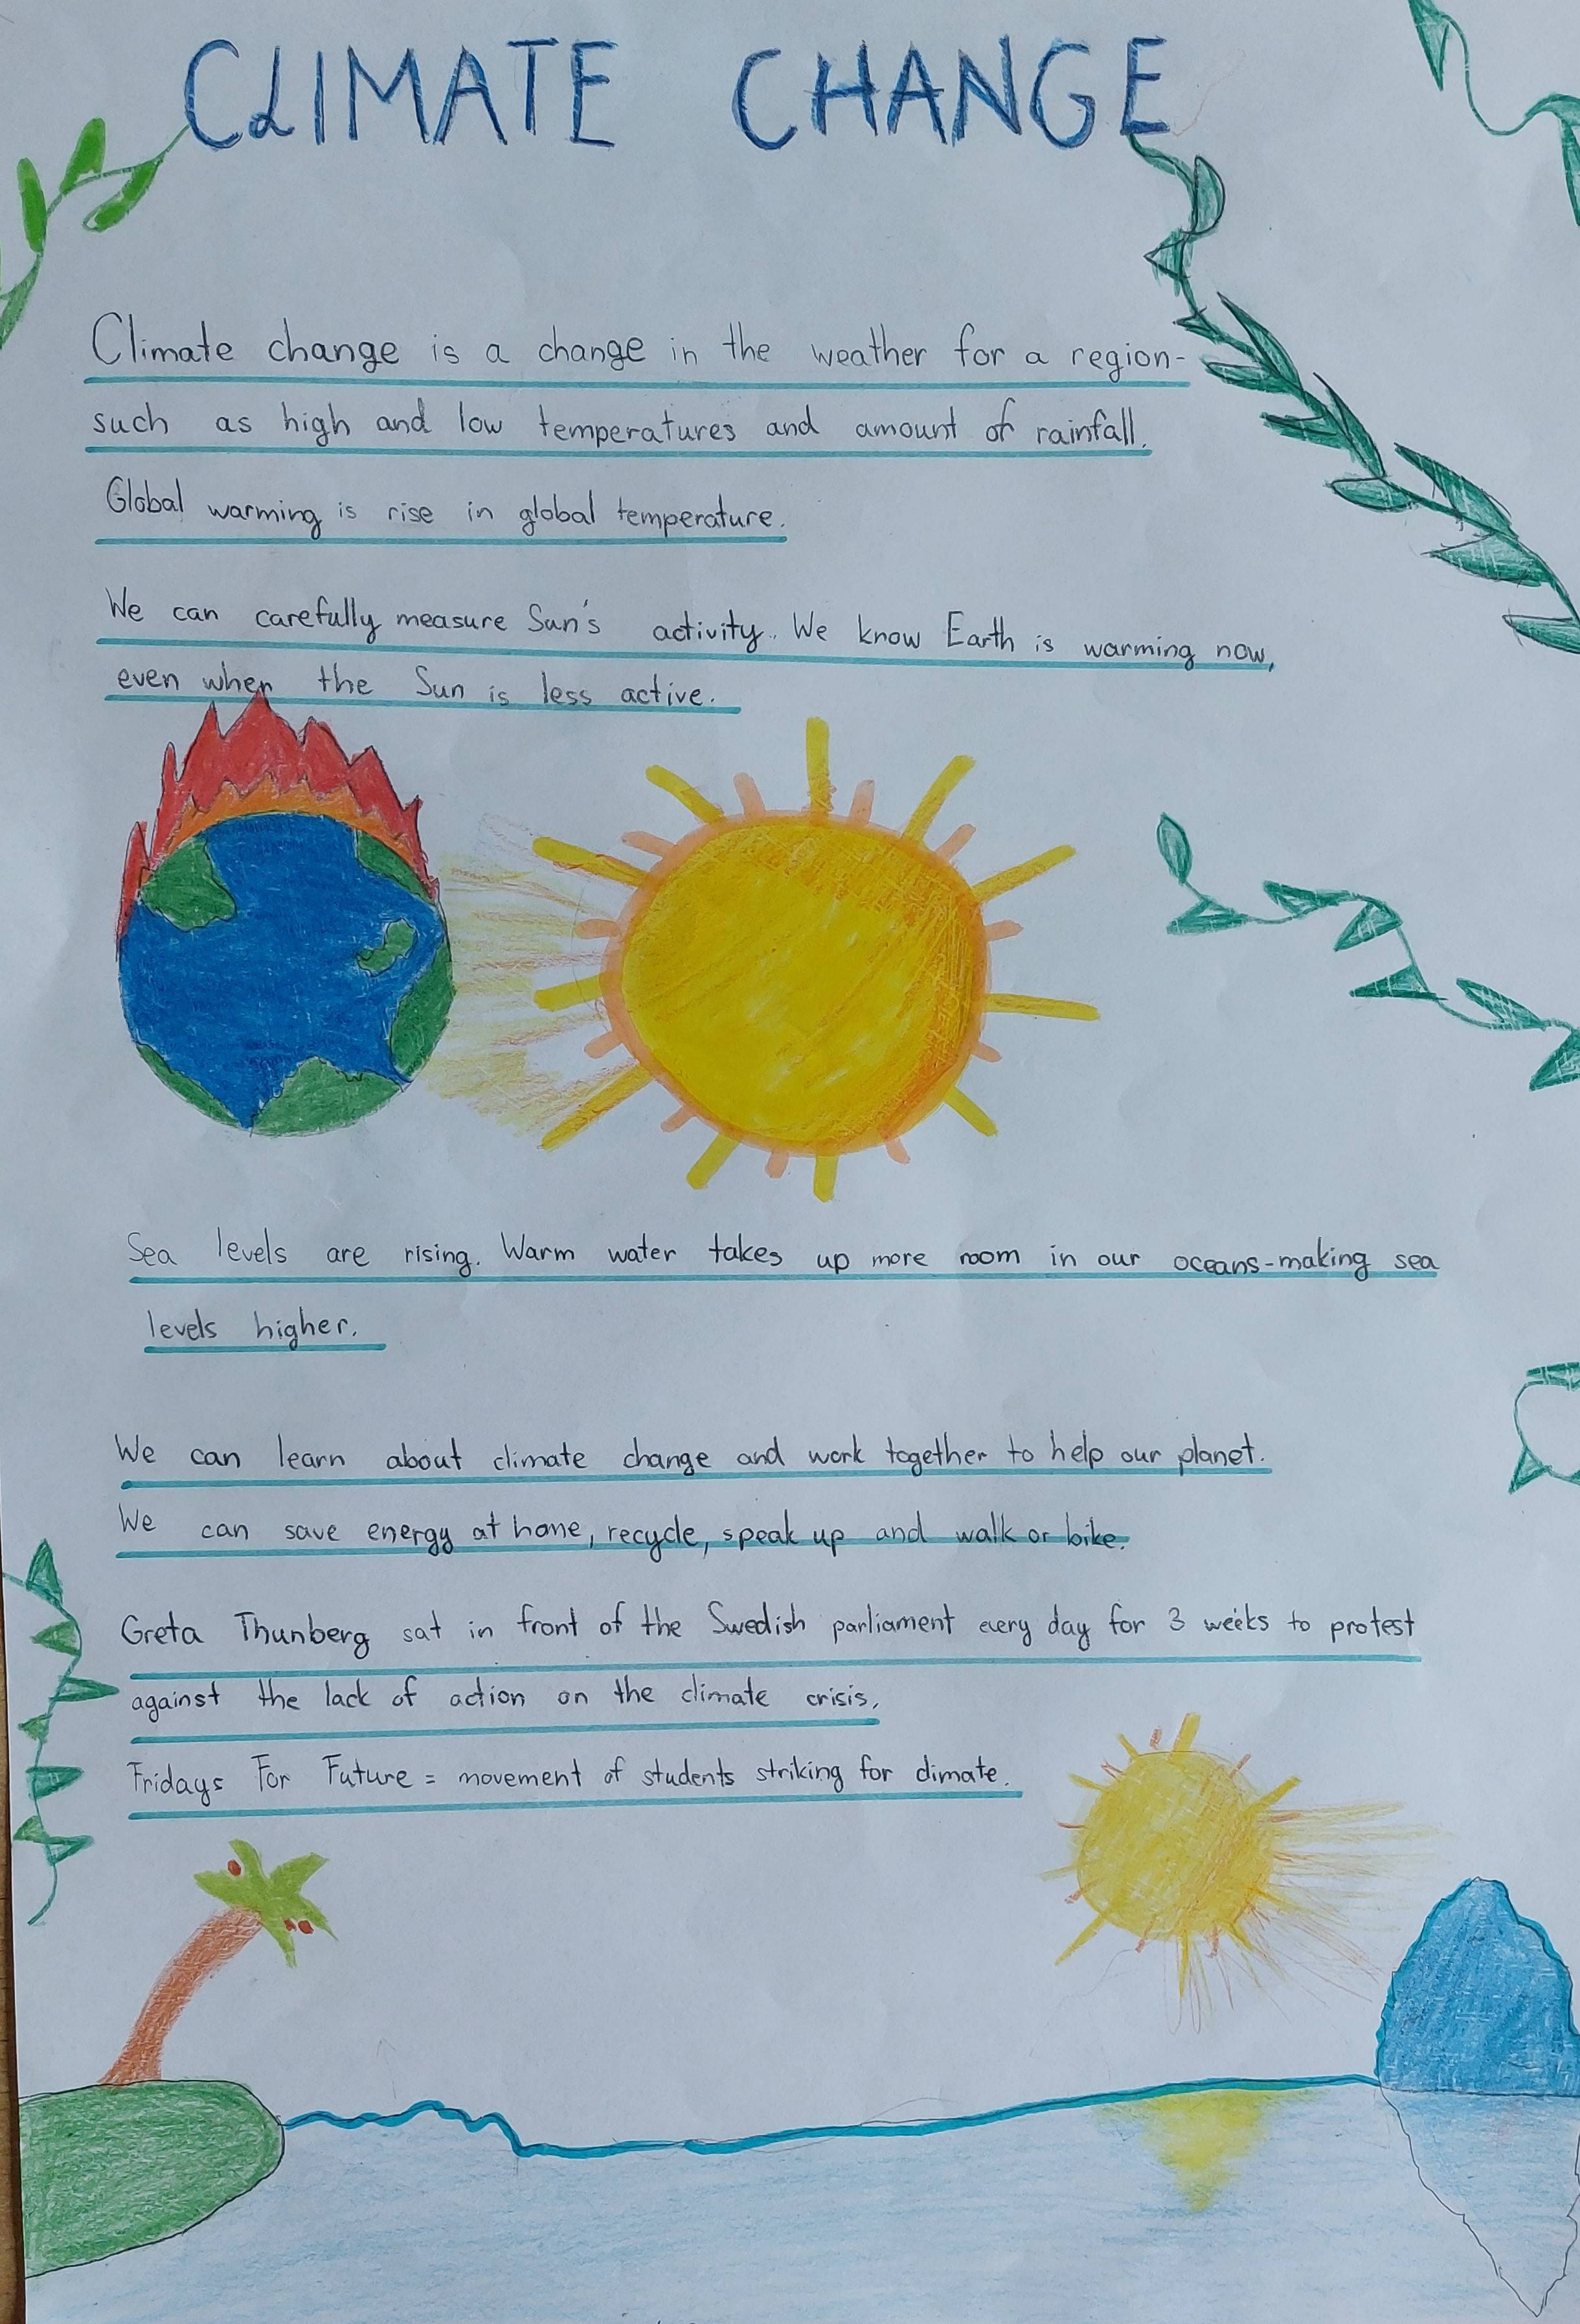 CLIMATE CHANGE
Climate change is a change in the weather for a region-
such as high and low temperatures and amount of rainfall.
Global warming is rise in global temperature.
We can carefully measure Sun's activity. We know Earth is warming now,
even when the Sun is less active.
Sea levels are rising. Warm water takes up more room in our oceans-making sea
levels higher.
We can learn about climate change and work together to help our planet.
We can save energy at home, recycle, speak up and walk or bike.
Greta Thunberg sat in front of the Swedish parliament every day for 3 weeks to protest
against the lack of action on the climate crisis.
Fridays For Future = movement of students striking for climate.